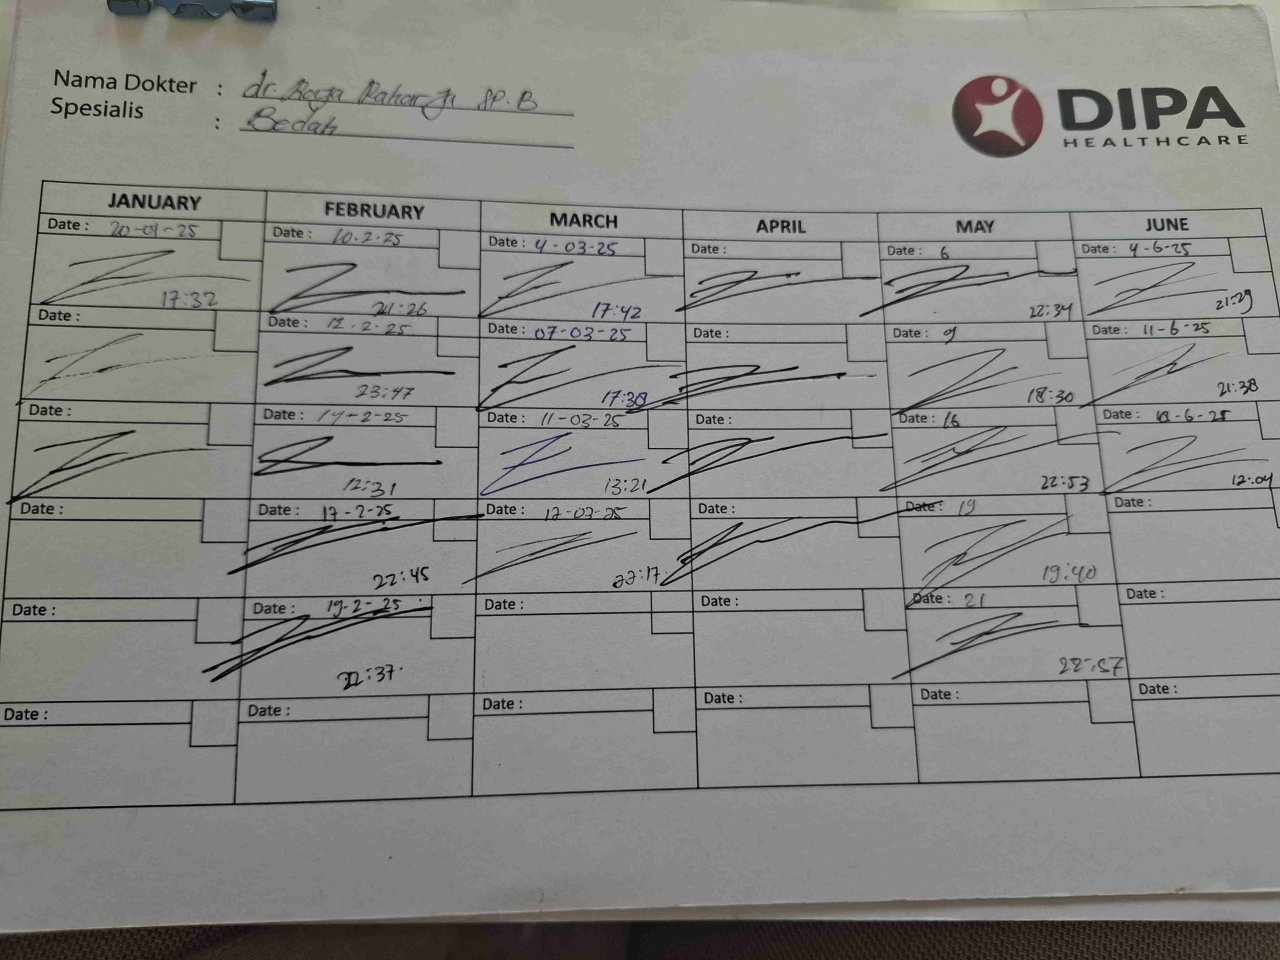 Nama Dokter : dr. Raga Raharja SP.B
Spesialis : Bedah
DIPA
HEALTHCARE
JANUARY FEBRUARY MARCH APRIL MAY JUNE
Date : 20-01-25 Date : 10.2.25 Date : 4-03-25 Date : Date : 6 Date : 4-6-25
17:32 21:26 17:42 22:34 21:29
Date : Date : 12.2.25 Date : 07-03-25 Date : Date : 9 Date : 11-6-25
23:47 17:38 18:30 21:38
Date : Date : 14-2-25 Date : 11-03-25 Date : Date : 16 Date : 18-6-25
12:31 13:21 22:53 12:04
Date : Date : 17-2-25 Date : 17-03-25 Date : Date : 19 Date :
22:45 22:17 19:40
Date : Date : 19-2-25 Date : Date : Date : 21 Date :
22:37 22:57
Date : Date : Date : Date : Date : Date :